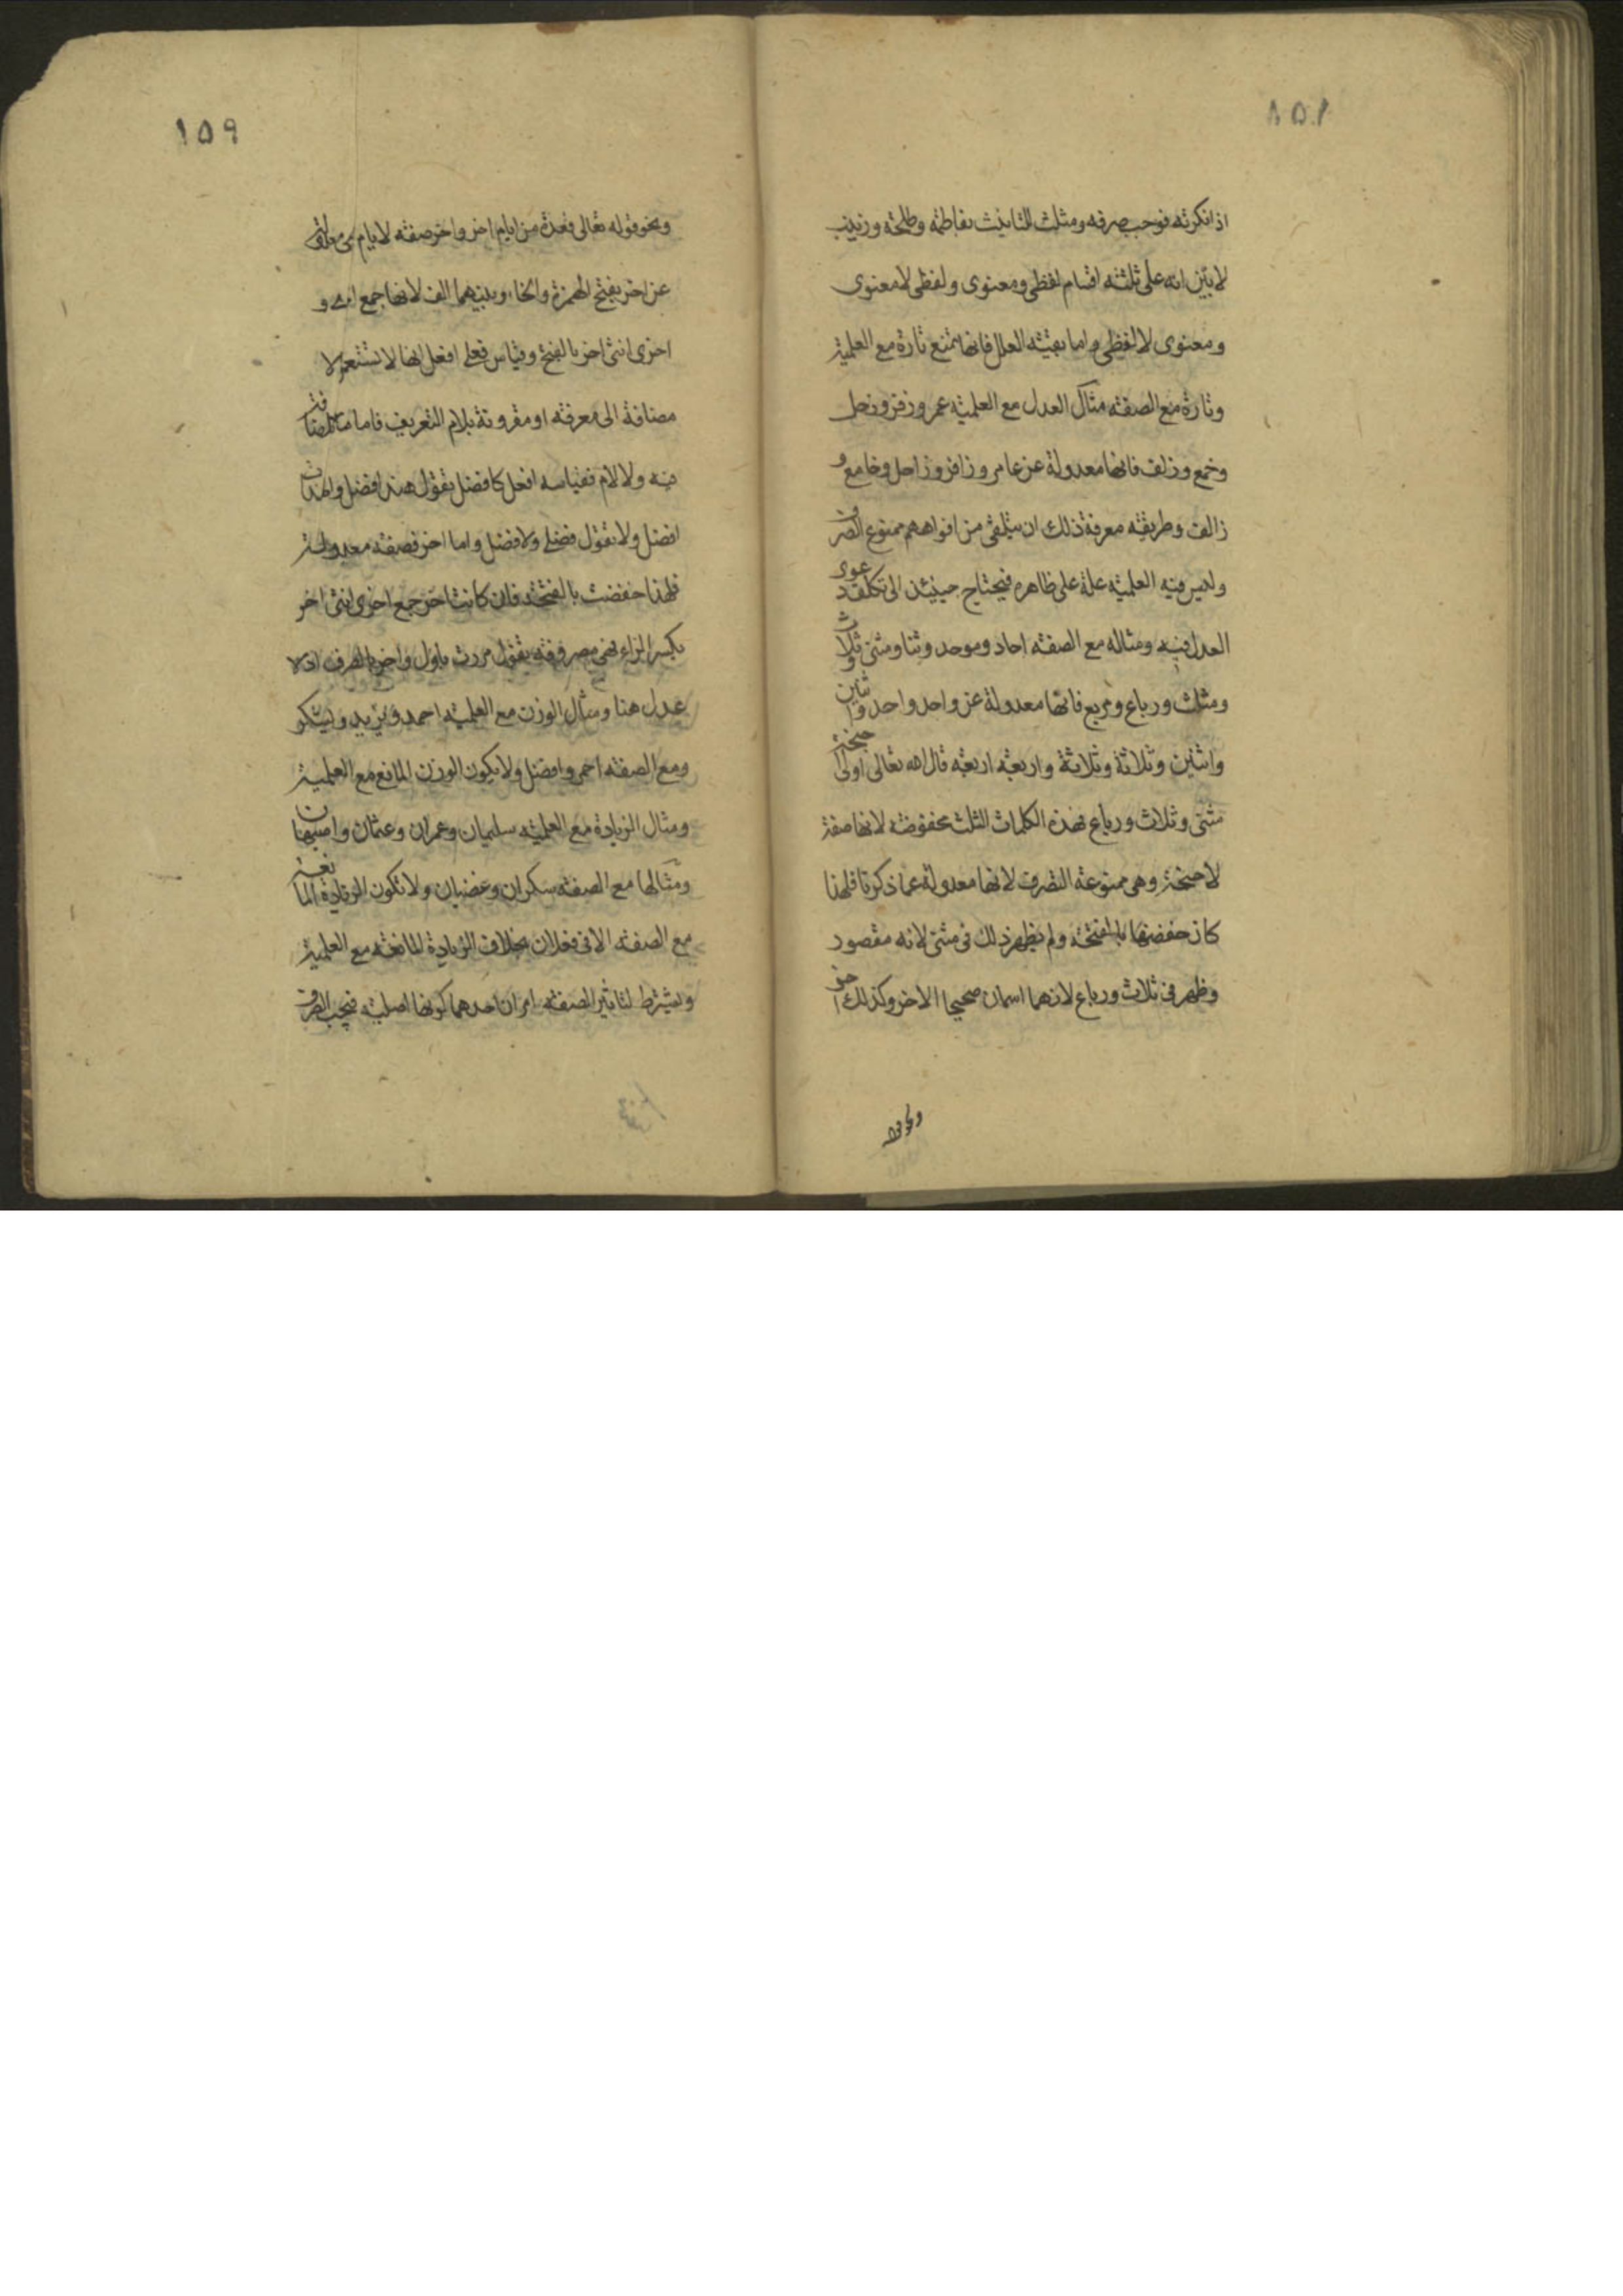 ١٥٨
اذا نكرته فوجب صرفه ومثلت للتانيث بفاطمة وطلحة وزينب
لابين انه على ثلثة اقسام لفظى ومعنوى ولفظى لا معنوى
ومعنوى لا لفظى واما بقية العلل فانها تمنع تارة مع العلمية
وتارة مع الصفة مثال العدل مع العلمية عمر وزفر وزحل
وجمع وزلف فانها معدولة عن عامر وزافر وزاحل وجامع و
زالف وطريقة معرفة ذلك ان يتلقى من افواههم ممنوع الصرف
وليس فيه العلمية علة على ظاهره فيحتاج حينئذ الى تكلف دعوى
العدل فيه ومثاله مع الصفة احاد وموحد وثنا ومثنى وثلاث
ومثلث ورباع ومربع فانها معدولة عن واحد واحد واثنين
واثنين وثلاثة وثلاثة واربعة اربعة قال الله تعالى اولى اجنحة
مثنى وثلاث ورباع فهذه الكلمات الثلث مخفوضة لانها صفة
لاجنحة وهى ممنوعة الصرف لانها معدولة عما ذكرنا فلهذا
كان خفضها بالفتحة ولم يظهر ذلك فى مثنى لانه مقصور
وظهر فى ثلاث ورباع لانهما اسمان صحيحا الاخر وكذلك اخر
ونحو قوله
١٥٩
ونحو قوله تعالى فعدة من ايام اخر واخر صفة لايام معدولة
عن اخر بفتح الهمزة والخاء وبينهما الف لانها جمع اخرى و
اخرى انثى اخر بالفتح وقياس فعلى افعل انها لا تستعمل الا
مضافة الى معرفة او مقرونة بلام التعريف فاما ما لا اضافة
فيه ولا لام فقياسه افعل كافضل تقول هند افضل والهندات
افضل ولا تقول فضلى ولا فضل واما اخر فصفة معدولة
فلهذا خفضت بالفتحة فان كانت اخر جمع اخرى انثى اخر
بكسر الراء فهى مصروفة تقول مررت باول واخر بالصرف اذ لا
عدل هنا ومثال الوزن مع العلمية احمد ويزيد ويشكر
ومع الصفة احمر وافضل ولا يكون الوزن المانع مع العلمية
ومثال الزيادة مع العلمية سليمان وعمران وعثمان واصبهان
ومثالها مع الصفة سكران وغضبان ولا تكون الزيادة المانعة
مع الصفة الا فى فعلان بخلاف الزيادة المانعة مع العلمية
ويشترط لتاثير الصفة امران احدهما كونها اصلية فيجب الصرف